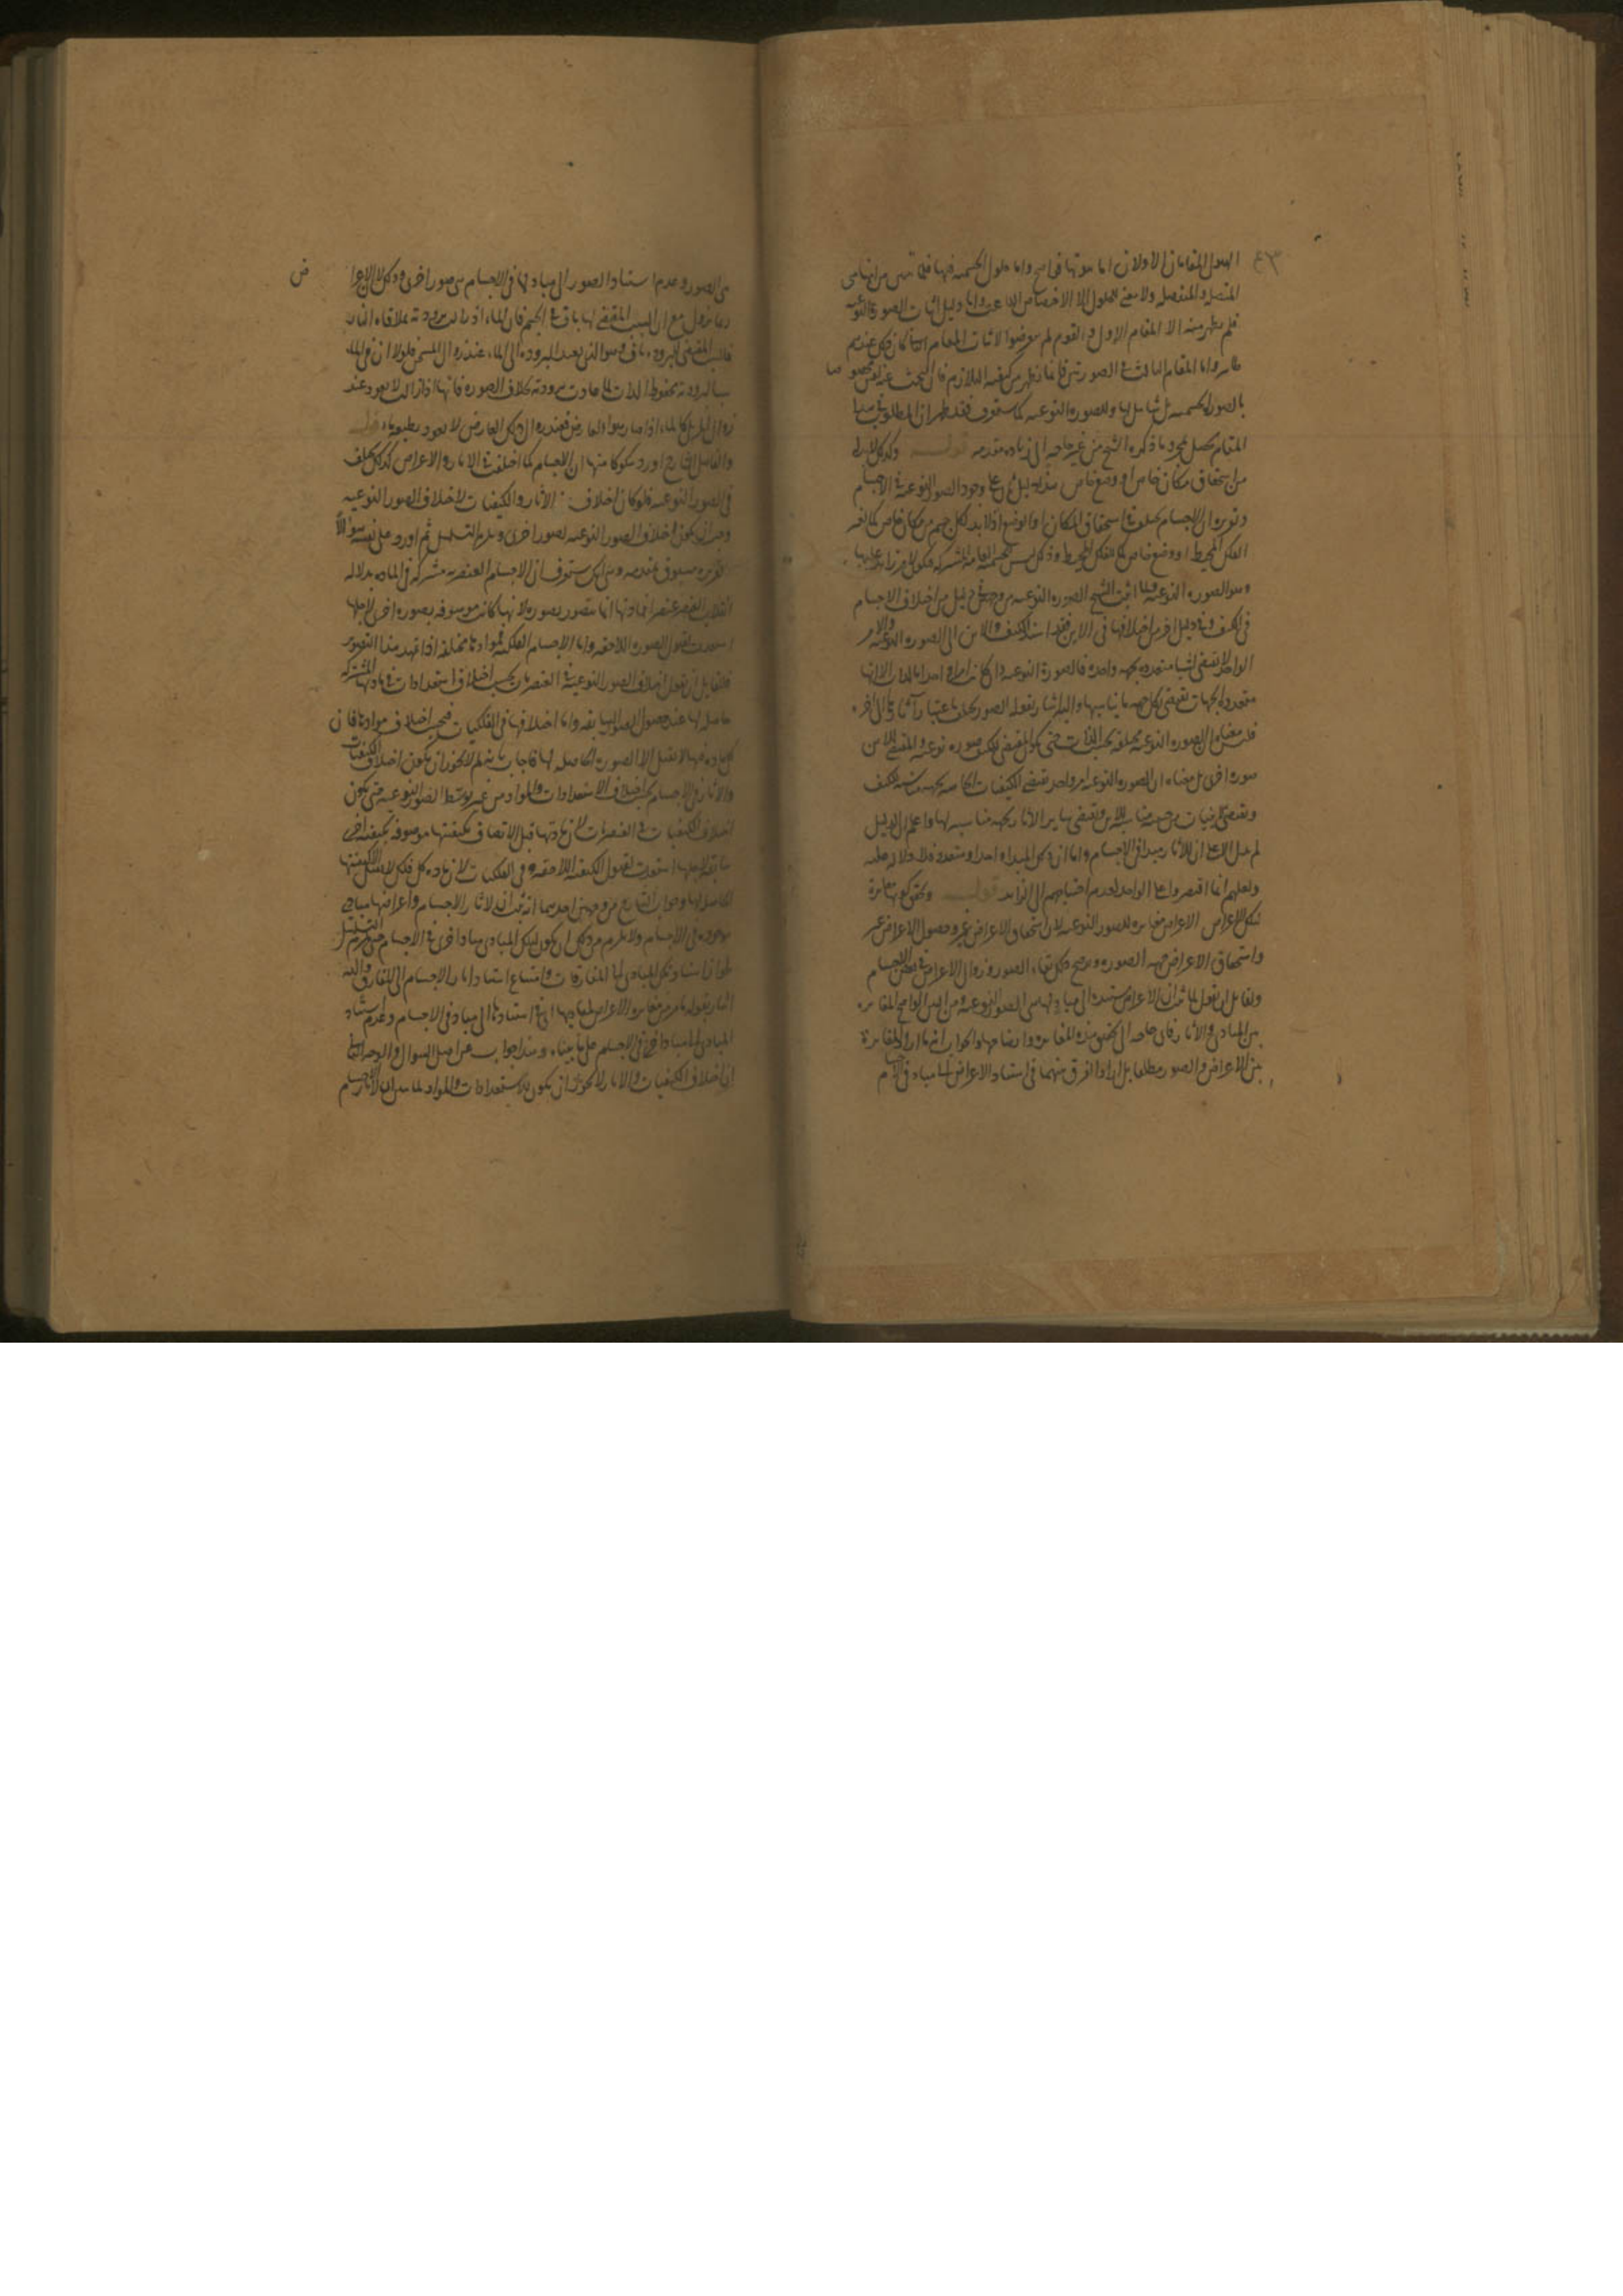 الهيولى المقامان الاولان اما هويتها في واما حلول الجسمية فيها فلما تبين من انها هي
المتصلة والمنفصلة ولا معنى للحلول الا الاختصاص الناعت واما دليل اثبات الصورة النوعية
فلم يظهر منه الا المقام الاول والقوم لم يتعرضوا لاثبات المقام الثاني كان ذلك عندهم
ظاهر واما المقام الثالث في الصورتين فانما يظهر من كيفية التلازم فان البحث عنه ليس مخصوصا
بالصورة الجسمية بل شامل لها وللصورة النوعية كما ستعرف فقد ظهر ان المطلوب في هذا
المقام يحصل بمجرد ما ذكره الشيخ من غير حاجة الى زيادة مقدمة قوله وكذلك لابد
من استحقاق مكان خاص او وضع خاص هذا دليل ثان على وجود الصور النوعية في الاجسام
وتقريره ان الاجسام تختلف في استحقاق المكان او الوضع اذ لابد لكل جسم من مكان خاص كما لغير
الفلك المحيط او وضع خاص كما للفلك المحيط وذلك ليس للجسمية العامة المشتركة فيكون لامر زائد عليها
وهو الصورة النوعية ولما اثبت الشيخ الصورة النوعية من وجهين دليل من اختلاف الاجسام
في الكيف ودليل اخر من اختلافها في الاين فقد اسند الكيف والاين الى الصورة النوعية والامر
الواحد لا يقتضي اشيا متعددة بجهة واحدة فالصورة النوعية وان كانت امرا واحدا بالذات الا انها
متعددة الجهات تقتضي بكل جهة ما يناسبها واليه اشار بقوله الصور تختلف باعتبار آثارها الى اخره
فليس معناه ان الصورة النوعية مختلفة بحسب الذات حتى يكون المقتضي للكيف صورة نوعية والمقتضي للاين
صورة اخرى بل معناه ان الصورة النوعية امر واحد تقتضي الكيفيات الخاصة بجهة مناسبة للكيف
وتقتضي الاينيات من جهة مناسبة للاين وتقتضي ساير الآثار بجهة مناسبة لها واعلم ان الدليل
لم يدل الا على ان للآثار مبدا في الاجسام واما ان ذلك المبدا واحد او متعدد فلا دلالة عليه
ولعلهم انما اقتصروا على الواحد لعدم احتياجهم الى الزائد قوله وتحقق كونها مغايرة
لتلك الاعراض الاعراض مغايرة للصور النوعية لان استحقاق الاعراض غير وحصول الاعراض غير
واستحقاق الاعراض جهة الصورة ويوضح ذلك بقاء الصور وزوال الاعراض في بعض الاجسام
ولقائل ان يقول لما ثبت ان الاعراض مستندة الى مباد هي الصور النوعية ومن البين الواضح المغايرة
بين المبادي والآثار فاي حاجة الى تحقيق هذه المغايرة وايضاحها والجواب انه ما اراد المغايرة
بين الاعراض والصور مطلقا بل اراد الفرق بينهما في استناد الاعراض الى مباد في الاجسام
هي الصور وعدم استناد الصور الى مباد لها في الاجسام هي صور اخرى وذلك لان الاعراض
ربما تزول مع ان السبب المقتضي لها باق في الجسم فان الماء اذا زالت برودته بملاقاة النار
فالسبب المقتضي للبرودة باق وهو الذي يعيد البرودة الى الماء عند زوال المسخن فلولا ان في الماء
سببا لبرودته محفوظ الذات لما عادت برودته بخلاف الصورة فانها اذا زالت لا تعود عند
زوال المزيل كالماء اذا صار هواء لعارض فعند زوال ذلك العارض لا يعود بطبعه ماء قوله
والفاضل الشارح اورد شكوكا منها ان الاجسام كما اختلفت في الآثار والاعراض كذلك تختلف
في الصور النوعية فلو كان اختلاف الآثار والكيفيات لاختلاف الصور النوعية
وجب ان يكون اختلاف الصور النوعية لصور اخرى ويلزم التسلسل ثم اورد على نفسه سؤالا
تقريره مسبوق بمقدمة وهي انك ستعرف ان الاجسام العنصرية مشتركة في المادة بدلالة
انقلاب العنصر عنصرا فمادتها انما تتصور بصورة لانها كانت موصوفة بصورة اخرى لاجلها
استعدت لقبول الصورة اللاحقة واما الاجسام الفلكية فموادها مختلفة اذا تمهد هذا التصوير
فلقايل ان يقول اختلاف الصور النوعية في العنصريات بحسب اختلاف استعدادات في مادتها المشتركة
حاصلة لها عند حصول الصور السابقة واما اختلافها في الفلكيات فبحسب اختلاف موادها فان
كل مادة منها لا تقبل الا الصورة الحاصلة لها فاجاب بانه لم لا يجوز ان يكون اختلاف الكيفيات
والآثار في الاجسام بحسب اختلاف الاستعدادات والمواد من غير توسط الصور النوعية حتى يكون
اختلاف الكيفيات في العنصريات لان مادتها قبل الاتصاف بكيفيتها موصوفة بكيفية اخرى
سابقة لاجلها استعدت لقبول الكيفية اللاحقة وفي الفلكيات لان مادة كل فلك لا تقبل الا كيفيتها
الحاصلة لها وجواب الشارح من وجهين احدهما انه ثبت ان لآثار الاجسام واعراضها مبادي
موجودة في الاجسام ولا يلزم من ذلك ان يكون لتلك المبادي مبادا اخرى في الاجسام حتى يلزم التسلسل
لجواز استناد تلك المبادي الى المفارقات وامتناع استناد آثار الاجسام الى المفارق واليه
اشار بقوله ما مر من مغايرة الاعراض لمباديها اي في استنادها الى مباد في الاجسام وعدم استناد
المبادي الى مباد اخرى في الاجسام على ما بيناه وهذا جواب عن اصل السؤال والوجه الثاني
ان اختلاف الكيفيات والآثار لا يجوز ان يكون للاستعدادات والمواد لما تبين ان الآثار الاجسام